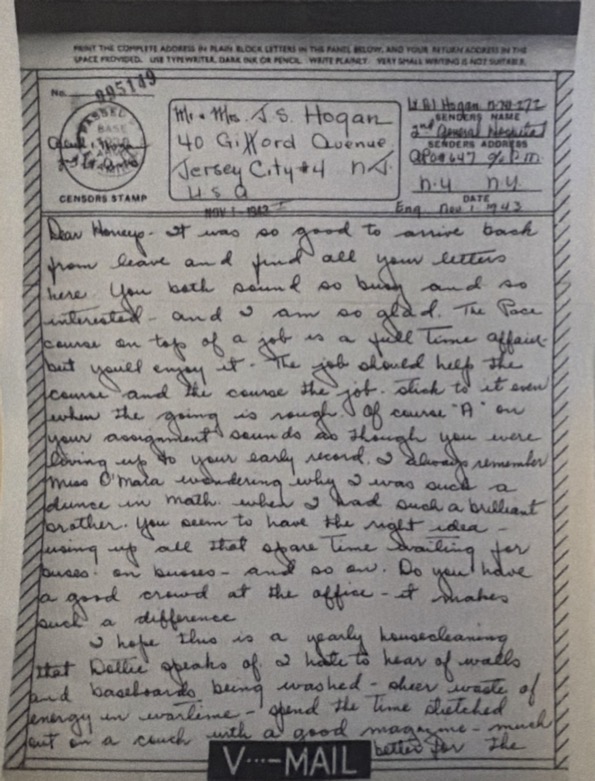 PRINT THE COMPLETE ADDRESS IN PLAIN BLOCK LETTERS IN THE PANEL BELOW, AND YOUR RETURN ADDRESS IN THE
SPACE PROVIDED. USE TYPEWRITER, DARK INK OR PENCIL. WRITE PLAINLY. VERY SMALL WRITING IS NOT SUITABLE.
No. 995149
PASSED
BASE
ARMY
CENSORS STAMP
Mr & Mrs. J.S. Hogan
40 Gifford Avenue
Jersey City #4 N.J.
U S A
NOV 1 - 1943
Lt. B I Hogan N-721-272
SENDERS NAME
2nd General Hospital
SENDERS ADDRESS
APO #647 % P.M.
N.Y. N.Y.
DATE
Eng. Nov 1, 1943
Dear Honeys - It was so good to arrive back
from leave and find all your letters
here. You both sound so busy and so
interested - and I am so glad. The Pace
course on top of a job is a full time affair -
but you'll enjoy it - The job should help the
course and the course the job. Stick to it even
when the going is rough. Of course "A" on
your assignment sounds as though you were
living up to your early record. I always remember
Miss O'Mara wondering why I was such a
dunce in math. when I had such a brilliant
brother. You seem to have the right idea -
using up all that spare time waiting for
buses - on busses - and so on. Do you have
a good crowd at the office - it makes
such a difference
I hope this is a yearly housecleaning
that Dollie speaks of. I hate to hear of walls
and baseboards being washed - sheer waste of
energy in wartime - spend the time stretched
out on a couch with a good magazine - much
better for the
V···-MAIL